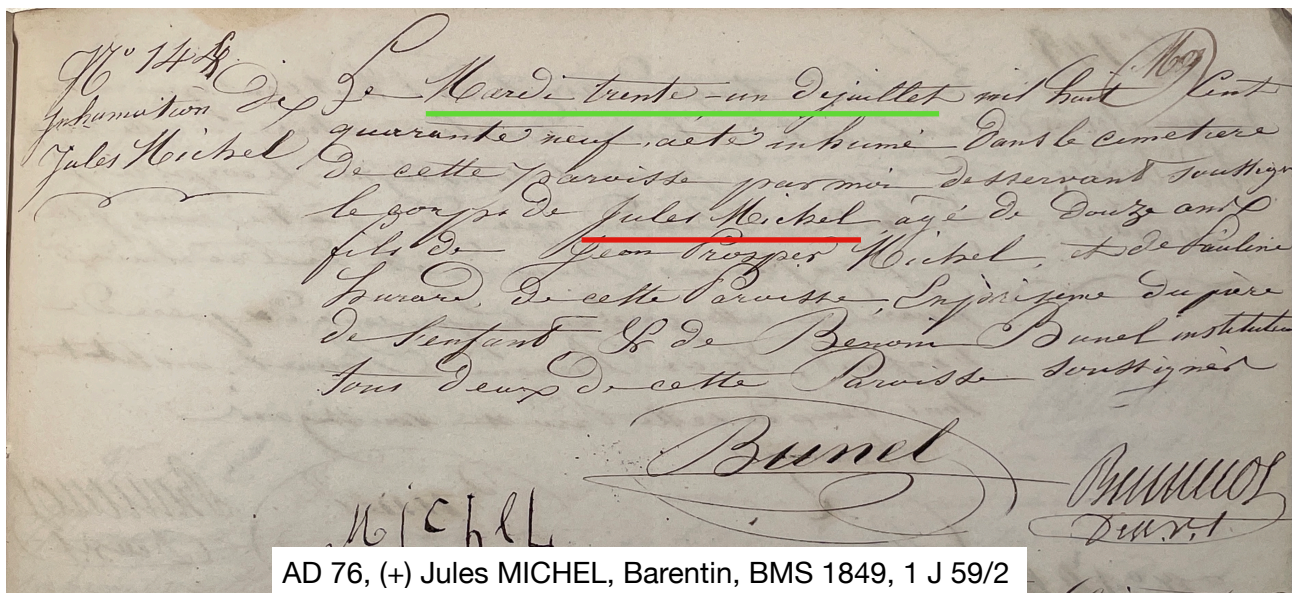 N° 144
Inhumation De
Jules Michel
Le Mardi trente-un dejuillet mil huit Cent
quarante neuf, aété inhumé Dans le cimetiere
De cette Paroisse par moi desservant soussigné
le corps de Jules Michel âgé de Douze ans
fils de Jean Prosper Michel, et de Pauline
de cette Paroisse, En présence du père
de l'enfant & de Benoni Bunel instituteur
tous Deux De cette Paroisse soussignés
Bunel
Michel
AD 76, (+) Jules MICHEL, Barentin, BMS 1849, 1 J 59/2